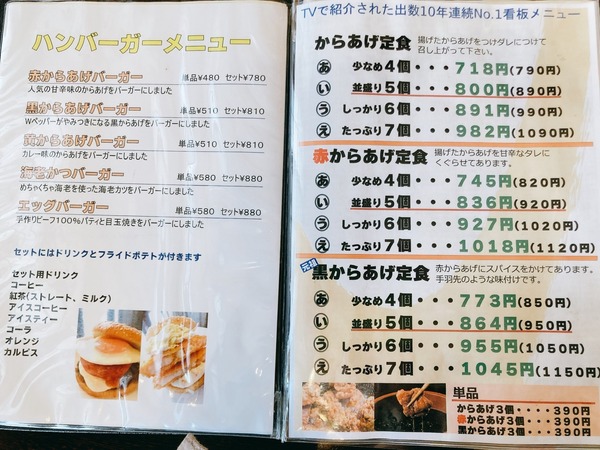 ハンバーガーメニュー
赤からあげバーガー 単品¥480 セット¥780
人気の甘辛味のからあげをバーガーにしました
黒からあげバーガー 単品¥510 セット¥810
Wペッパーがやみつきになる黒からあげをバーガーにしました
黄からあげバーガー 単品¥510 セット¥810
カレー味のからあげをバーガーにしました
海老かつバーガー 単品¥580 セット¥880
めちゃくちゃ海老を使った海老カツをバーガーにしました
エッグバーガー 単品¥580 セット¥880
手作りビーフ100%パティと目玉焼きをバーガーにしました
セットにはドリンクとフライドポテトが付きます
セット用ドリンク
コーヒー
紅茶(ストレート、ミルク)
アイスコーヒー
アイスティー
コーラ
オレンジ
カルピス
TVで紹介された出数10年連続No.1看板メニュー
からあげ定食 揚げたからあげをつけダレにつけて
召し上がって下さい。
あ 少なめ4個・・・718円(790円)
い 並盛り5個・・・800円(890円)
う しっかり6個・・・891円(990円)
え たっぷり7個・・・982円(1090円)
赤からあげ定食 揚げたからあげを甘辛なタレに
くぐらせてあります。
あ 少なめ4個・・・745円(820円)
い 並盛り5個・・・836円(920円)
う しっかり6個・・・927円(1020円)
え たっぷり7個・・・1018円(1120円)
元祖 黒からあげ定食 赤からあげにスパイスをかけてあります。
手羽先のような味付けです。
あ 少なめ4個・・・773円(850円)
い 並盛り5個・・・864円(950円)
う しっかり6個・・・955円(1050円)
え たっぷり7個・・・1045円(1150円)
単品
からあげ3個・・・・390円
赤からあげ3個・・・390円
黒からあげ3個・・・390円